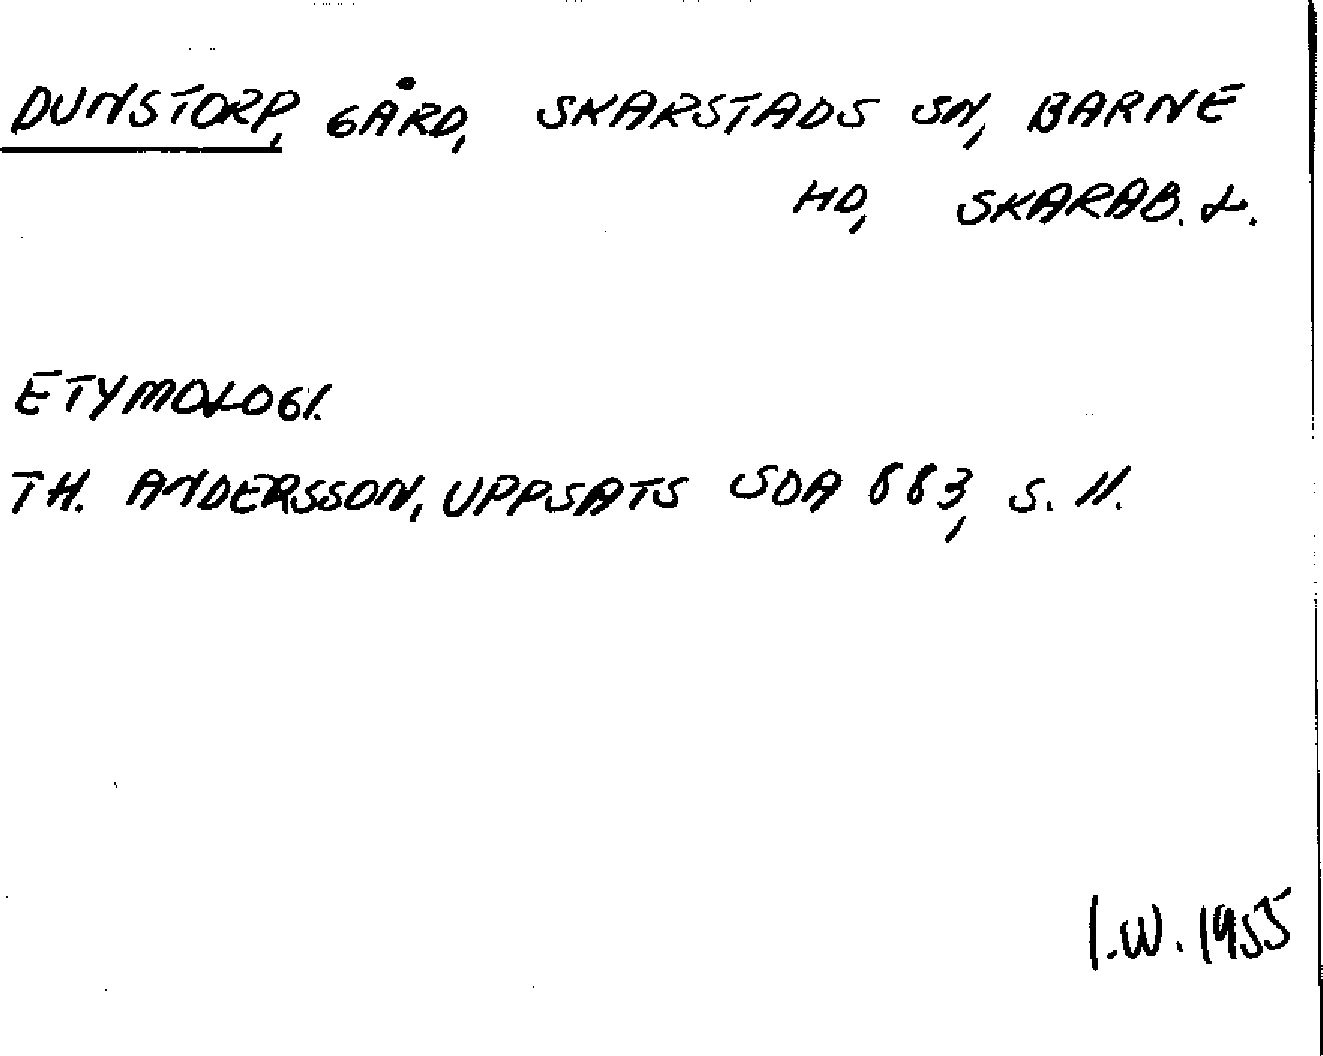 DUNSTORP, GÅRD, SKARSTADS SN, BARNE
HD, SKARAB. L.
ETYMOLOGI.
TH. ANDERSSON, UPPSATS SOA 883, S. 11.
I.W. 1955